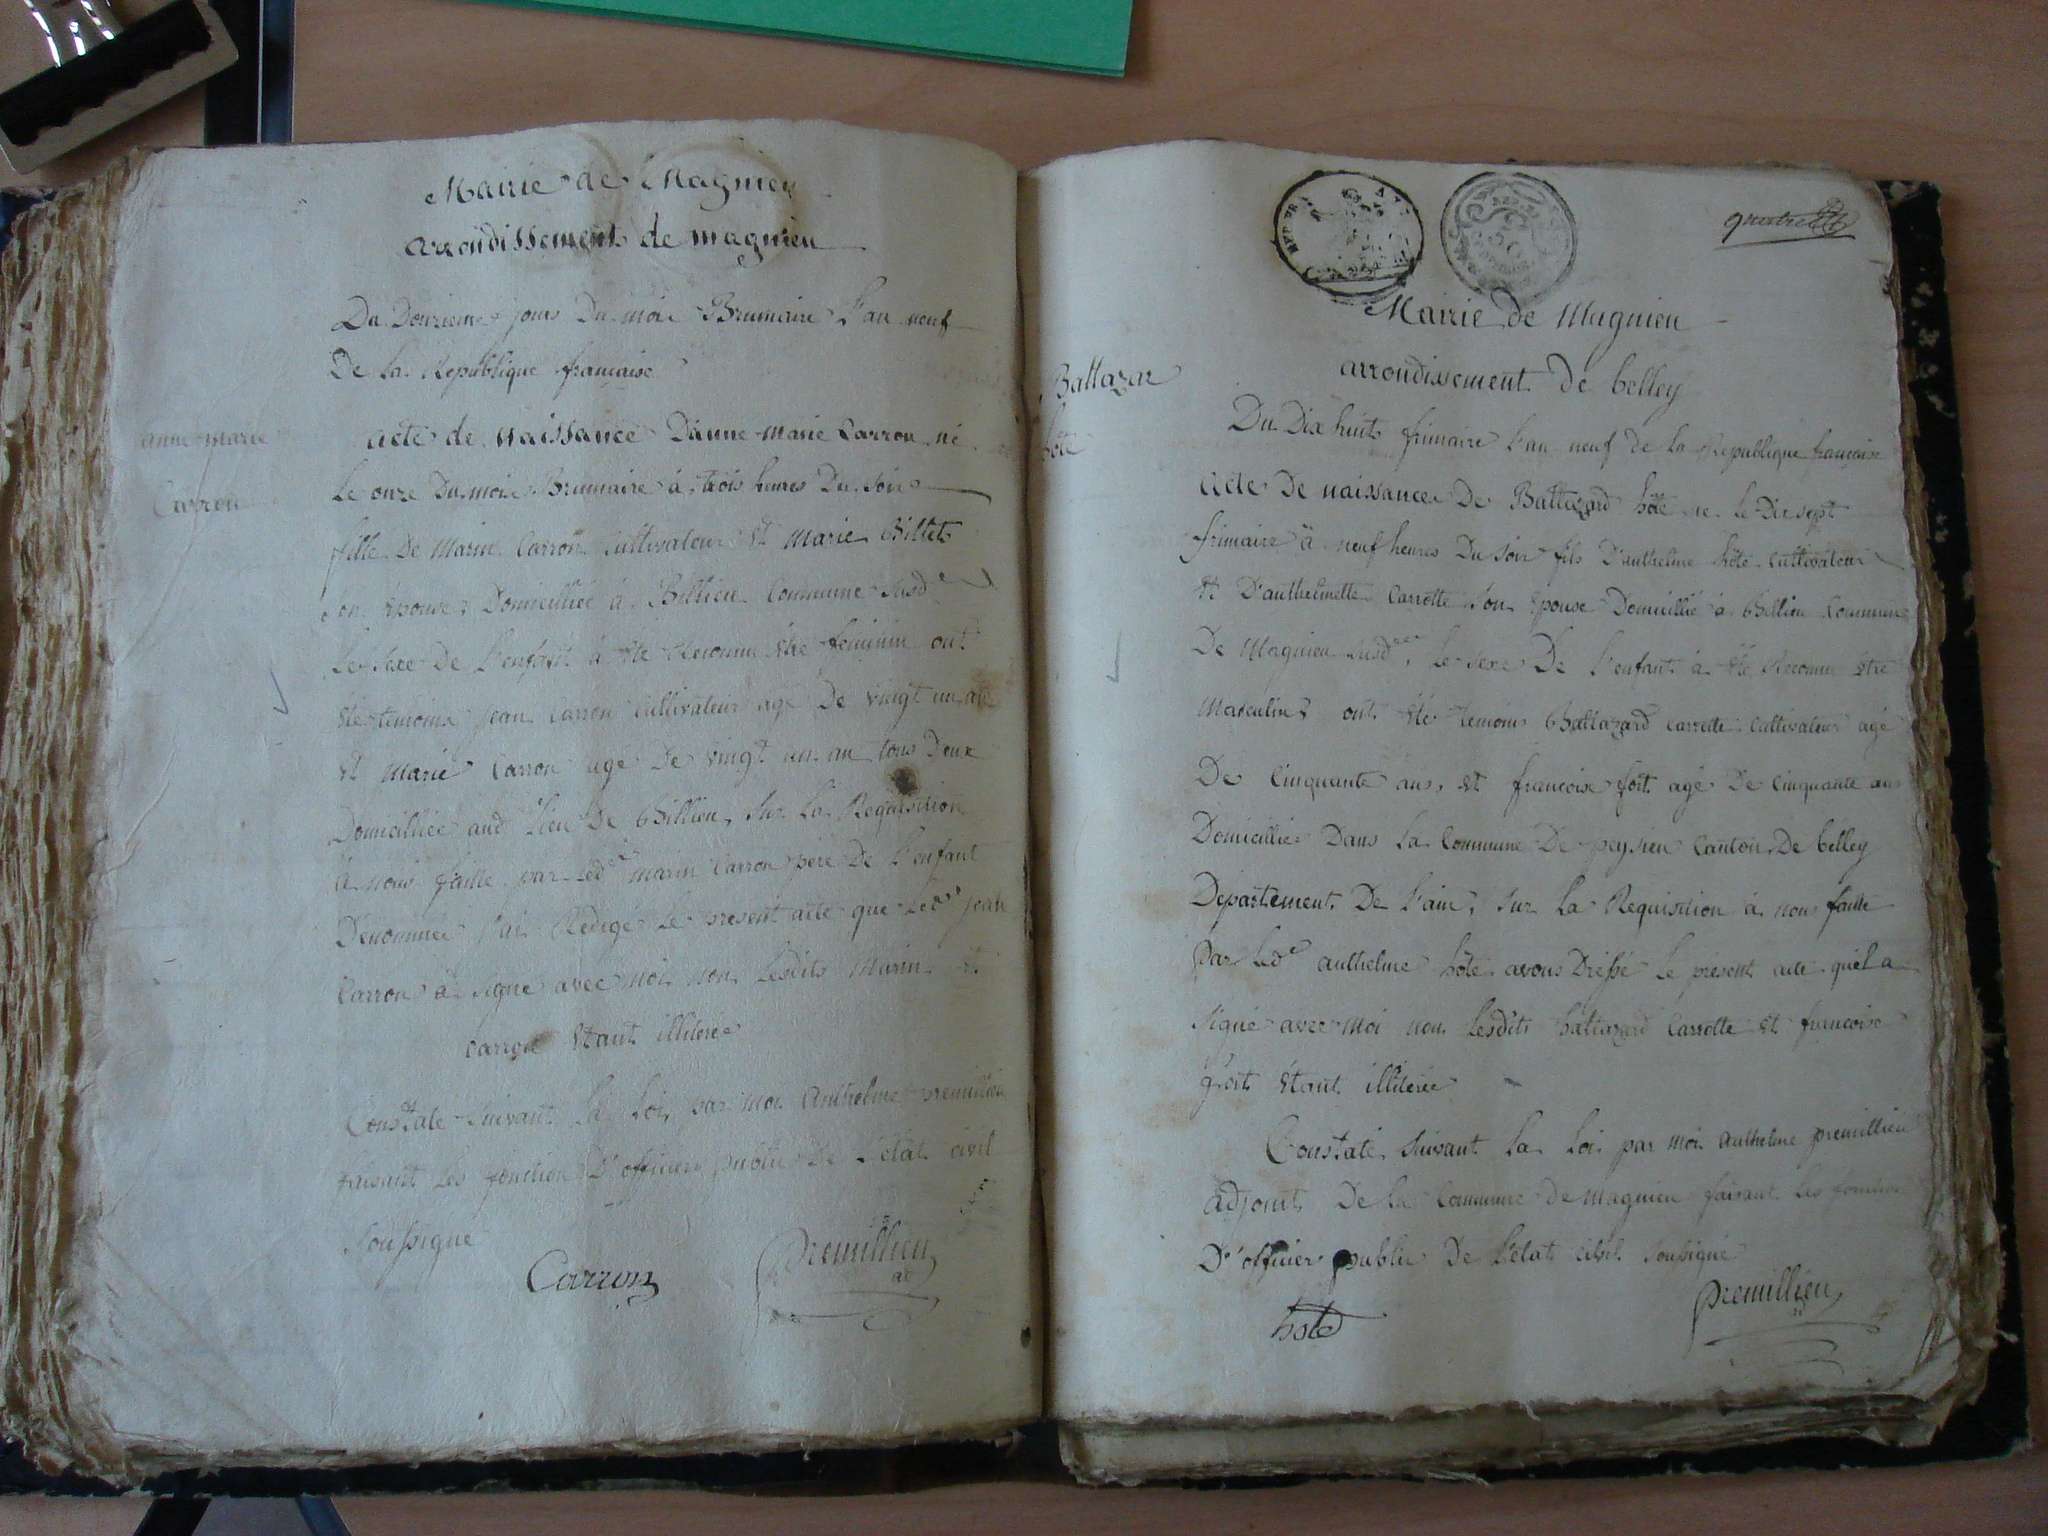 Mairie de Magnieu
arrondissement de magnieu
Du Douzieme jours Du mois Brumaire L'an neuf
De la Republique française
anne marie
Carron
acte de naissance D'anne marie Carron né
Le onze Du mois Brumaire à trois heures Du Soir
fille De Marin Carron Cultivateur Et Marie Billet
Son Epouse Domicilliée à Billieu Commune Susd.e
Le Sexe De L'enfant à Eté Reconnu Etre feminin ont
Eté temoins jean Carron Cultivateur agé De vingt un an
Et Marie Carron agé De vingt un an tous Deux
Domicilliée aud lieu De Billieu, Sur La Requisition
à nous faitte par Led marin Carron père De L'enfant
Denommée j'ai Redigé Le present acte que Led jean
Carron à Signé avec moi non Lesdits Marin Et
Carron Etant illiterée
Constaté Suivant La Loi par moi Anthelme premillieu
faisant Les fonction D'officier public De L'etat civil
Soussigné
Carron
premillieu
ad
Mairie de Magnieu
arrondissement De belley
Baltazar
hôte
Du Dix huit frimaire L'an neuf de La Republique française
Acte De naissance De Baltazard hôte né Le Dix sept
frimaire à neuf heures Du Soir fils D'anthelme hôte Cultivateur
Et D'anthelmette Carrotte Son Epouse Domicillié à Billieu Commune
De Magnieu Susd, Le Sexe De L'enfant à Eté Reconnu Etre
Masculin, ont Eté temoins Baltazard Carrotte Cultivateur agé
De Cinquante ans, Et françoise fort agé De Cinquante ans
Domicilliés Dans La Commune De peyzieu Canton De belley
Departement De L'ain, Sur La Requisition à nous faitte
par Led.e anthelme hôte avons Dressé Le présent acte qu'el a
Signé avec moi non Lesdits baltazard Carrotte Et françoise
fort Etant illiterée
Constaté Suivant La Loi par moi anthelme premillieu
adjoint De la Commune de magnieu faisant Les fonction
D'officier public De L'etat civil Soussigné
hôte
premillieu